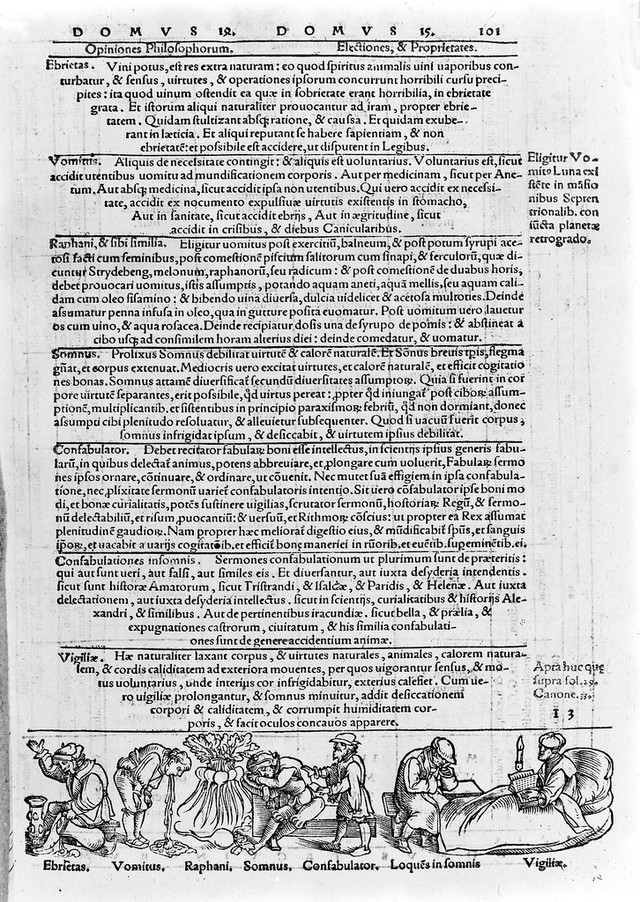 DOMVS 12. DOMVS 15. 101
Opiniones Philosophorum. Electiones, & Proprietates.
Ebrietas. Vini potus, est res extra naturam: eo quod spiritus animalis uini uaporibus con-
turbatur, & sensus, uirtutes, & operationes ipsorum concurrunt horribili cursu preci-
pites: ita quod uinum ostendit ea quæ in sobrietate erant horribilia, in ebrietate
grata. Et istorum aliqui naturaliter prouocantur ad iram, propter ebrie-
tatem. Quidam stultizant absq; ratione, & causa. Et quidam exube-
rant in læticia. Et aliqui reputant se habere sapientiam, & non
ebrietatē: et possibile est accidere, ut disputent in Legibus.
Vomitus. Aliquis de necessitate contingit: & aliquis est voluntarius. Voluntarius est, sicut
accidit utentibus uomitu ad mundificationem corporis. Aut per medicinam, sicut per Ane-
tum. Aut absq; medicina, sicut accidit ipsa non utentibus. Qui uero accidit ex necessi-
tate, accidit ex nocumento expulsiuæ uirtutis existentis in stomacho,
Aut in sanitate, sicut accidit ebrijs, Aut in ægritudine, sicut
accidit in crisibus, & diebus Canicularibus.
Eligitur Vo-
mit⁹ Luna exi
stēte in māsio
nibus Septen
trionalib. con
iūcta planetæ
retrogrado.
Raphani, & sibi similia. Eligitur uomitus post exercitiū, balneum, & post potum syrupi ace-
tosi facti cum seminibus, post comestionē piscium salitorum cum sinapi, & ferculorū, quæ di-
cuntur Strydebeng, melonum, raphanorū, seu radicum: & post comestionē de duabus horis,
debet prouocari uomitus, istis assumptis, potando aquam aneti, aquā mellis, seu aquam cali-
dam cum oleo sisamino: & bibendo uina diuersa, dulcia uidelicet & acetosa multoties. Deinde
assumatur penna infusa in oleo, qua in gutture posita euomatur. Post uomitum uero lauetur
os cum uino, & aqua rosacea. Deinde recipiatur dosis una de syrupo de pomis: & abstineat à
cibo usq; ad consimilem horam alterius diei: deinde comedatur, & uomatur.
Somnus. Prolixus Somnus debilitat uirtutē & calorē naturalē. Et Sōnus breuis tp̄is, flegma
gn̄at, et corpus extenuat. Mediocris uero excitat uirtutes, et calorē naturalē, et efficit cogitatio
nes bonas. Somnus attamē diuersificat secundū diuersitates assumptor. Quia si fuerint in cor
pore uirtutē separantes, erit possibile, qd uirtus pereat: ppter qd iniungat post cibor assum-
ptionē, multiplicantib. et sistentibus in principio paraxismor febriū, qd non dormiant, donec
assumpti cibi plenitudo resoluatur, & alleuietur subsequenter. Quod si uacuū fuerit corpus,
somnus infrigidat ipsum, & desiccabit, & uirtutem ipsius debilitat.
Confabulator. Debet recitator fabular boni esse intellectus, in scientijs ipsius generis fabu-
larū, in quibus delectat animus, potens abbreuiare, et plongare cum uoluerit, Fabular sermo
nes ipsos ornare, cōtinuare, & ordinare, ut cōuenit. Nec mutet suā effigiem in ipsa confabula-
tione, nec plixitate sermonū uariet confabulatoris intentio. Sit uero cōfabulator ipse boni mo
di, et bonæ curialitatis, potēs sustinere uigilias, scrutator sermonū, historiar Regū, & sermo-
nū delectabiliū, et risum puocantiū: & uersuū, et Rithmor cōscius: ut propter ea Rex assumat
plenitudinē gaudior. Nam propter hæc meliorat digestio eius, & mūdificabit sp̄us, et sanguis
ipor, et uacabit a uarijs cogitatōib. et efficit bonę maneriei in
Confabulationes in somnis. Sermones confabulationum ut plurimum sunt de præteritis:
qui aut sunt ueri, aut falsi, aut similes eis. Et diuersantur, aut iuxta desyderia intendentis.
sicut sunt historiæ Amatorum, sicut Tristrandi, & Isaldæ, & Paridis, & Helenæ. Aut iuxta
delectationem, aut iuxta desyderia intellectus. sicut in scientijs, curialitatibus & historijs Ale-
xandri, & similibus. Aut de pertinentibus iracundiæ. sicut bella, & prælia, &
expugnationes castrorum, ciuitatum, & his similia confabulati-
ones sunt de genere accidentium animæ.
Vigiliæ. Hæ naturaliter laxant corpus, & uirtutes naturales, animales, calorem natura-
lem, & cordis caliditatem ad exteriora mouentes, per quos uigorantur sensus, & mo-
tus uoluntarius, unde interius cor infrigidabitur, exterius calefiet. Cum ue-
ro uigiliæ prolongantur, & somnus minuitur, addit desiccationem
corpori & caliditatem, & corrumpit humiditatem cor-
poris, & facit oculos concauos apparere.
Apta huc que
supra fol. 29.
Canone. 33.
I 3
Ebrietas. Vomitus. Raphani. Somnus. Confabulator. Loquēs in somnis Vigiliæ.